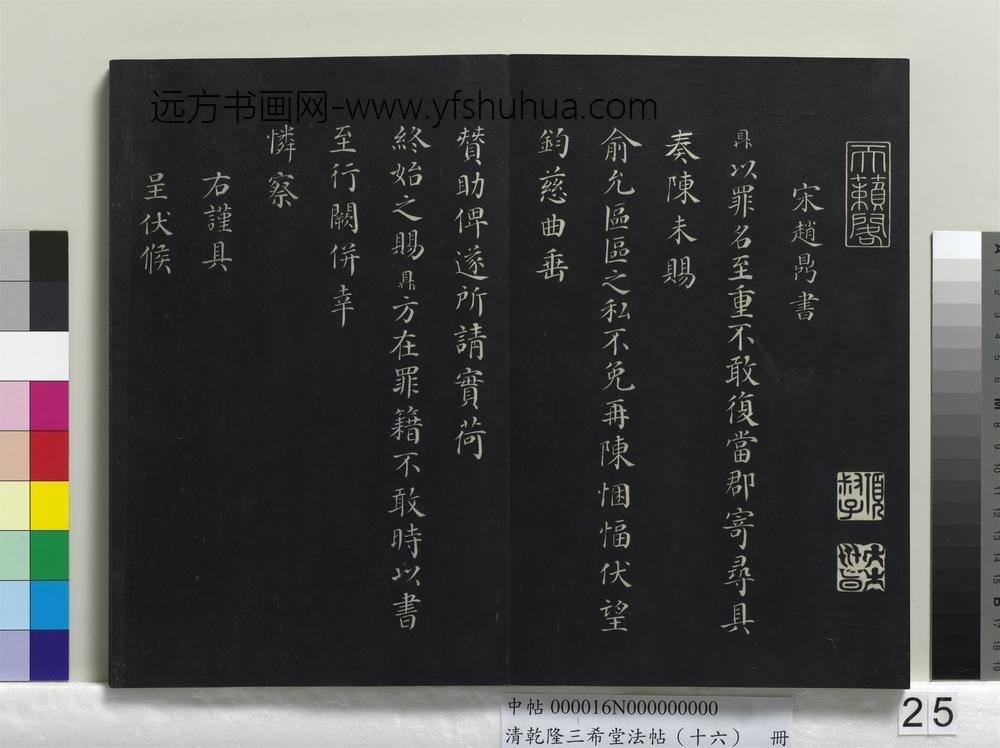 远方书画网-www.yfshuhua.com
天籟閣
宋趙鼎書
鼎以罪名至重不敢復當郡寄尋具
奏陳未賜
俞允區區之私不免再陳悃愊伏望
鈞慈曲垂
贊助俾遂所請實荷
終始之賜鼎方在罪籍不敢時以書
至行闕併幸
憐察
右謹具
呈伏候
中帖 000016N000000000
清乾隆三希堂法帖（十六） 冊
25